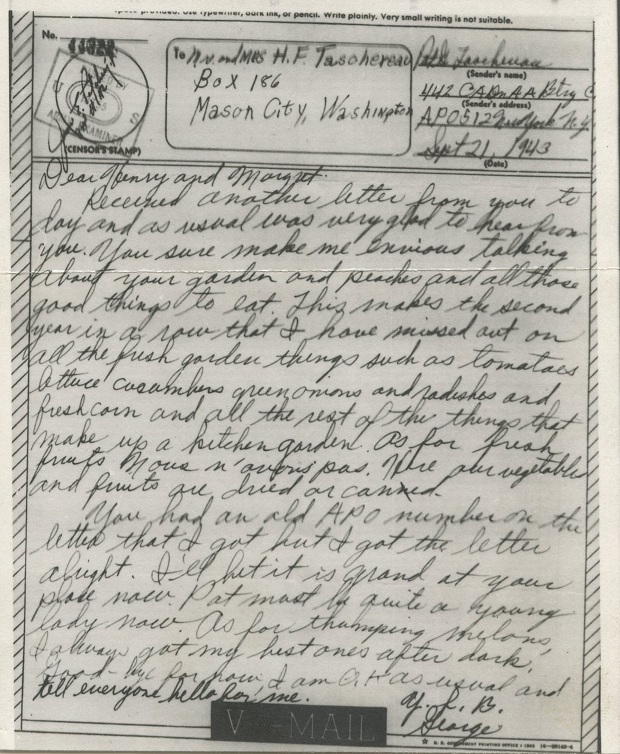 space provided. Use typewriter, dark ink, or pencil. Write plainly. Very small writing is not suitable.
No.
(CENSOR'S STAMP)
To Mr. and Mrs H. F. Taschereau
Box 186
Mason City, Washington
Taschereau
(Sender's name)
442 CA Bn AA Btry C
(Sender's address)
APO 512 New York N.Y.
Sept 21, 1943
(Date)
Dear Henry and Margret.
Received another letter from you to
day and as usual was very glad to hear from
you. You sure make me envious talking
about your garden and peaches and all those
good things to eat. This makes the second
year in a row that I have missed out on
all the fresh garden things such as tomatoes
lettuce cucumbers green onions and radishes and
fresh corn and all the rest of the things that
make up a kitchen garden. As for fresh
fruits Nous n'avons pas. Here our vegetables
and fruits are dried or canned.
You had an old APO number on the
letter that I got but I got the letter
alright. I'll bet it is grand at your
place now. Pat must be quite a young
lady now. As for thumping melons,
I always got my best ones after dark.
Good-bye for now I am O.K as usual and
tell everyone hello for me.
Y. L. B.
George
V-MAIL
U. S. GOVERNMENT PRINTING OFFICE : 1943